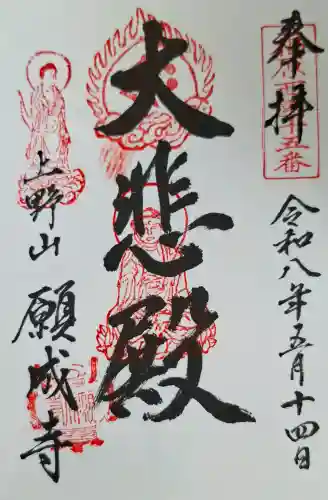 奉拝
令和八年五月十四日
大悲殿
上野山
願成寺